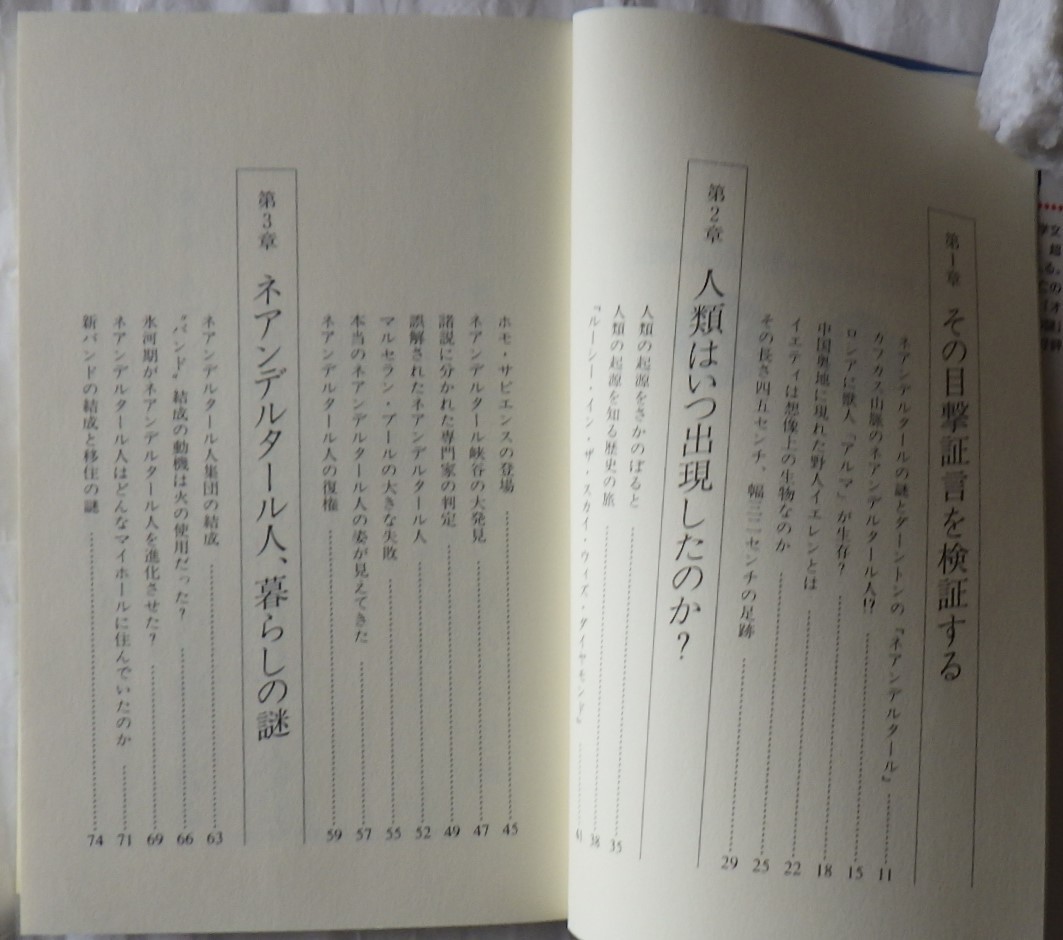 第1章 その目撃証言を検証する
ネアンデルタールの謎とダーントンの『ネアンデルタール』 11
カフカス山脈のネアンデルタール人!? 15
ロシアに獣人「アルマ」が生存? 18
中国奥地に現れた野人イエレンとは 22
イエティは想像上の生物なのか 25
その長さ四五センチ、幅三二センチの足跡 29
第2章 人類はいつ出現したのか?
人類の起源をさかのぼると 35
人類の起源を知る歴史の旅 38
『ルーシー・イン・ザ・スカイ・ウィズ・ダイヤモンド』 41
ホモ・サピエンスの登場 45
ネアンデルタール峡谷の大発見 47
諸説に分かれた専門家の判定 49
誤解されたネアンデルタール人 52
マルセラン・ブールの大きな失敗 55
本当のネアンデルタール人の姿が見えてきた 57
ネアンデルタール人の復権 59
第3章 ネアンデルタール人、暮らしの謎
ネアンデルタール人集団の結成 63
“バンド”結成の動機は火の使用だった? 66
氷河期がネアンデルタール人を進化させた? 69
ネアンデルタール人はどんなマイホールに住んでいたのか 71
新バンドの結成と移住の謎 74